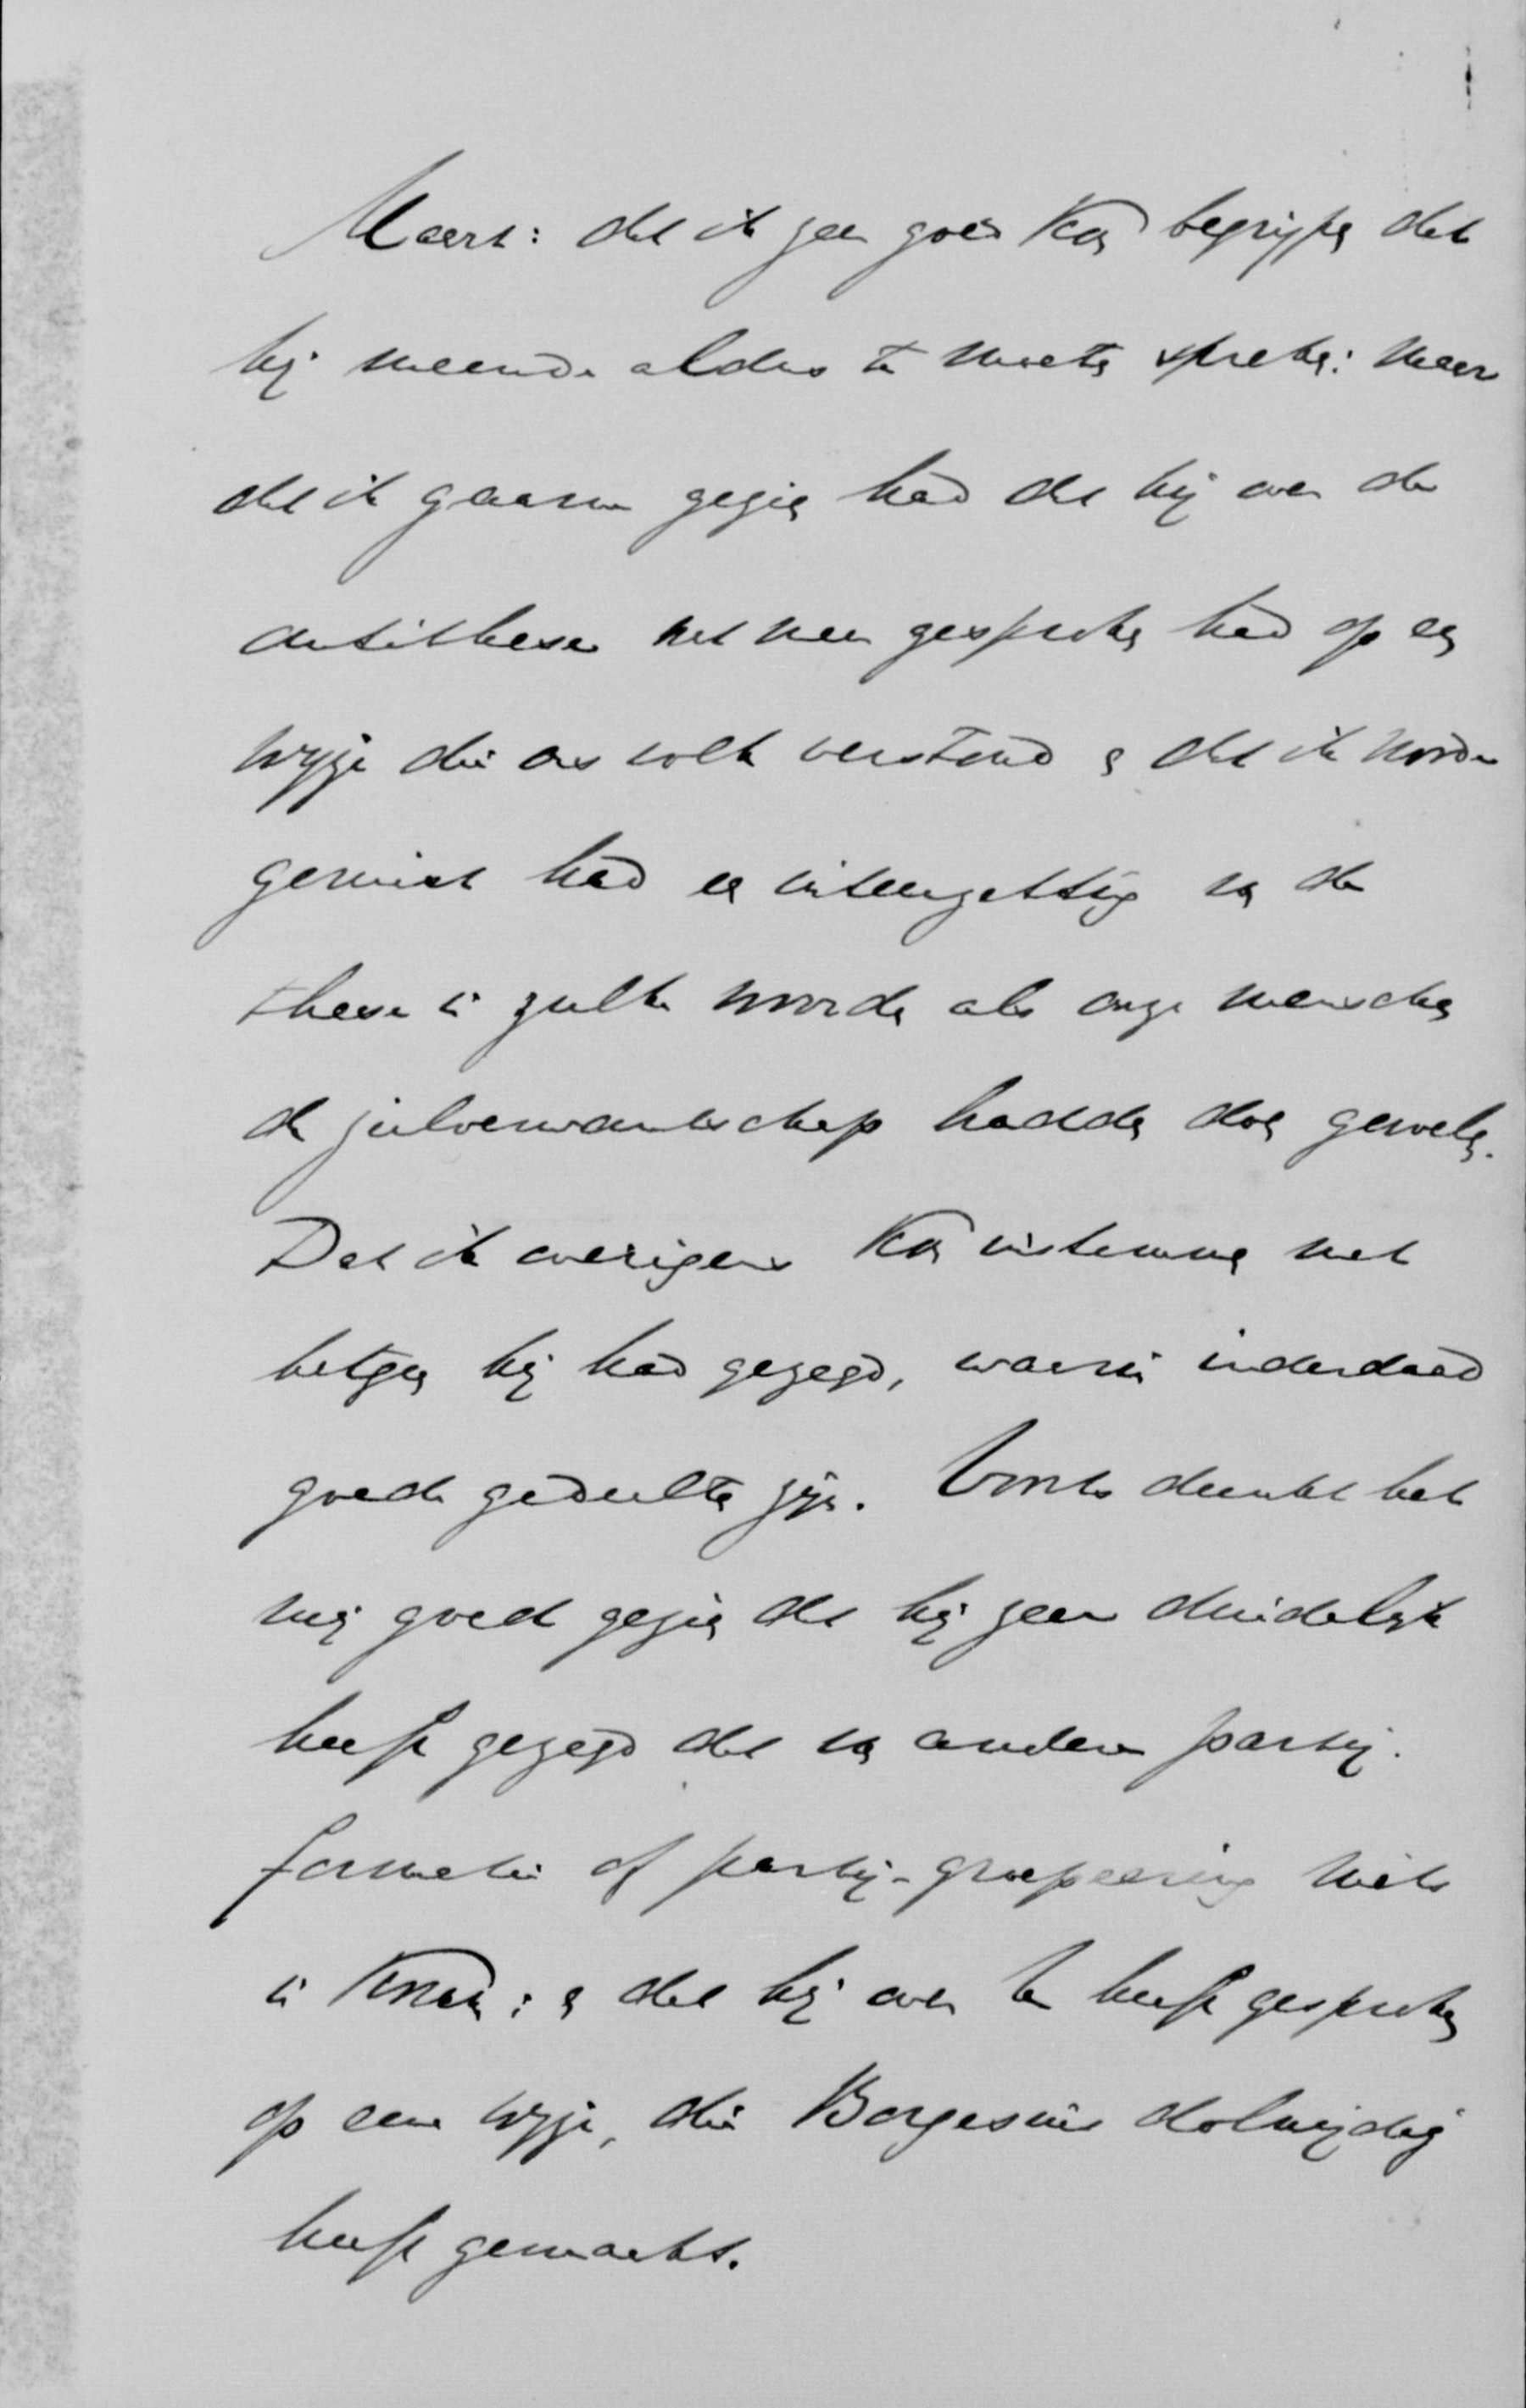 Maar: dat ik zeer goed kan begrijpen dat
hij meende aldus te moeten spreken: maar
dat ik gaarne gezien had dat hij over de
antithese niet meer gesproken had op een
wijze die ons volk verstond en dat ik
gewild had een uiteenzetting van de
these in zulke woorden als onze menschen
de zielverwantschap hadden doen gevoelen.
Dat ik overigens kan instemmen met
hetgeen hij had gezegd, waarin inderdaad
goede gedeelten zijn. Voorts dunkt het
mij goed gezien dat hij zeer duidelijk
heeft gezegd dat van andere partij-
formatie of partij-groepeering niets
in komen: en dat hij over heeft gesproken
op eene wijze, die Borgesius dolnijdig
heeft gemaakt.